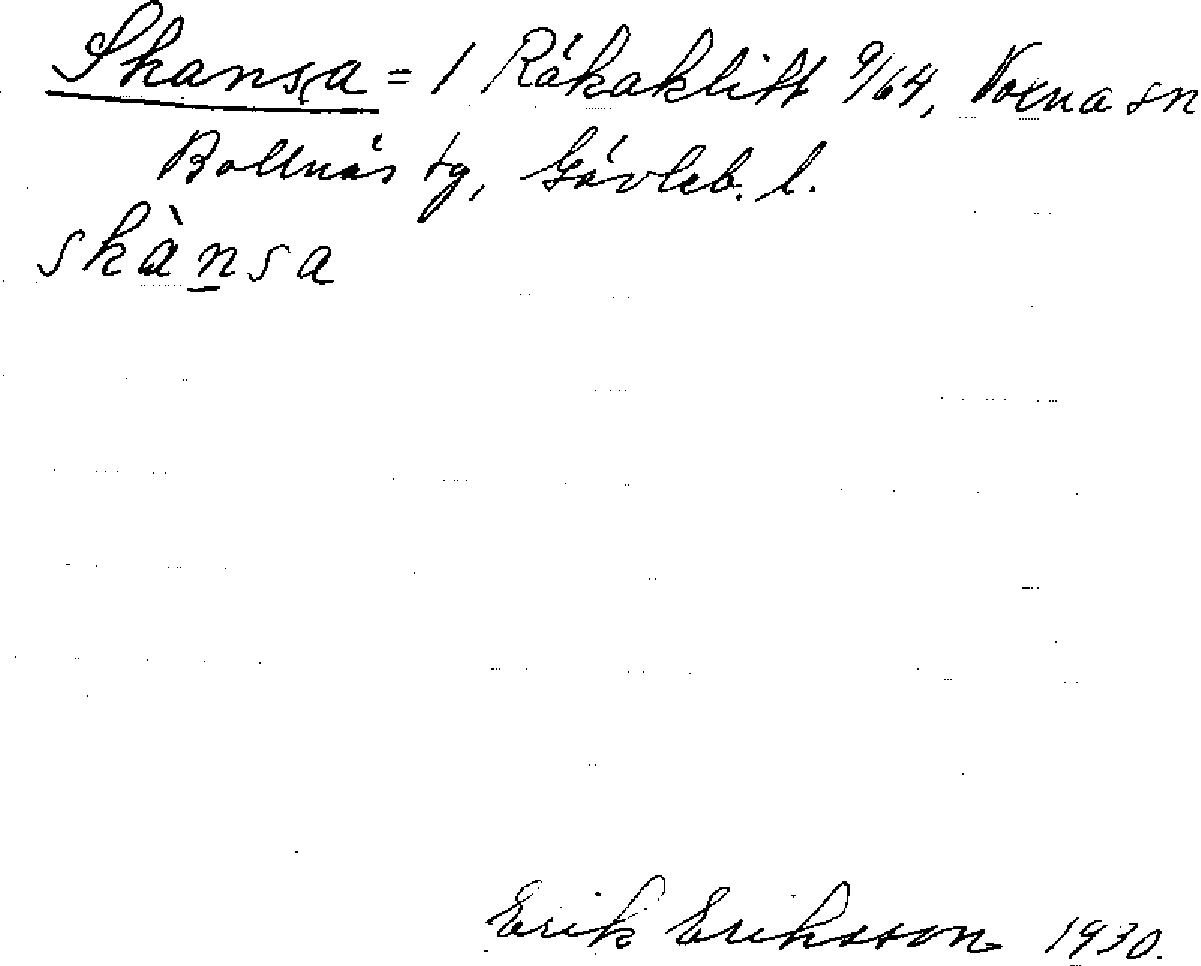 Skansa = 1 Råkaklitt 9/64, Voxna sn
Bollnäs tg, Gävleb. l.
skànsa
Erik Eriksson 1930.